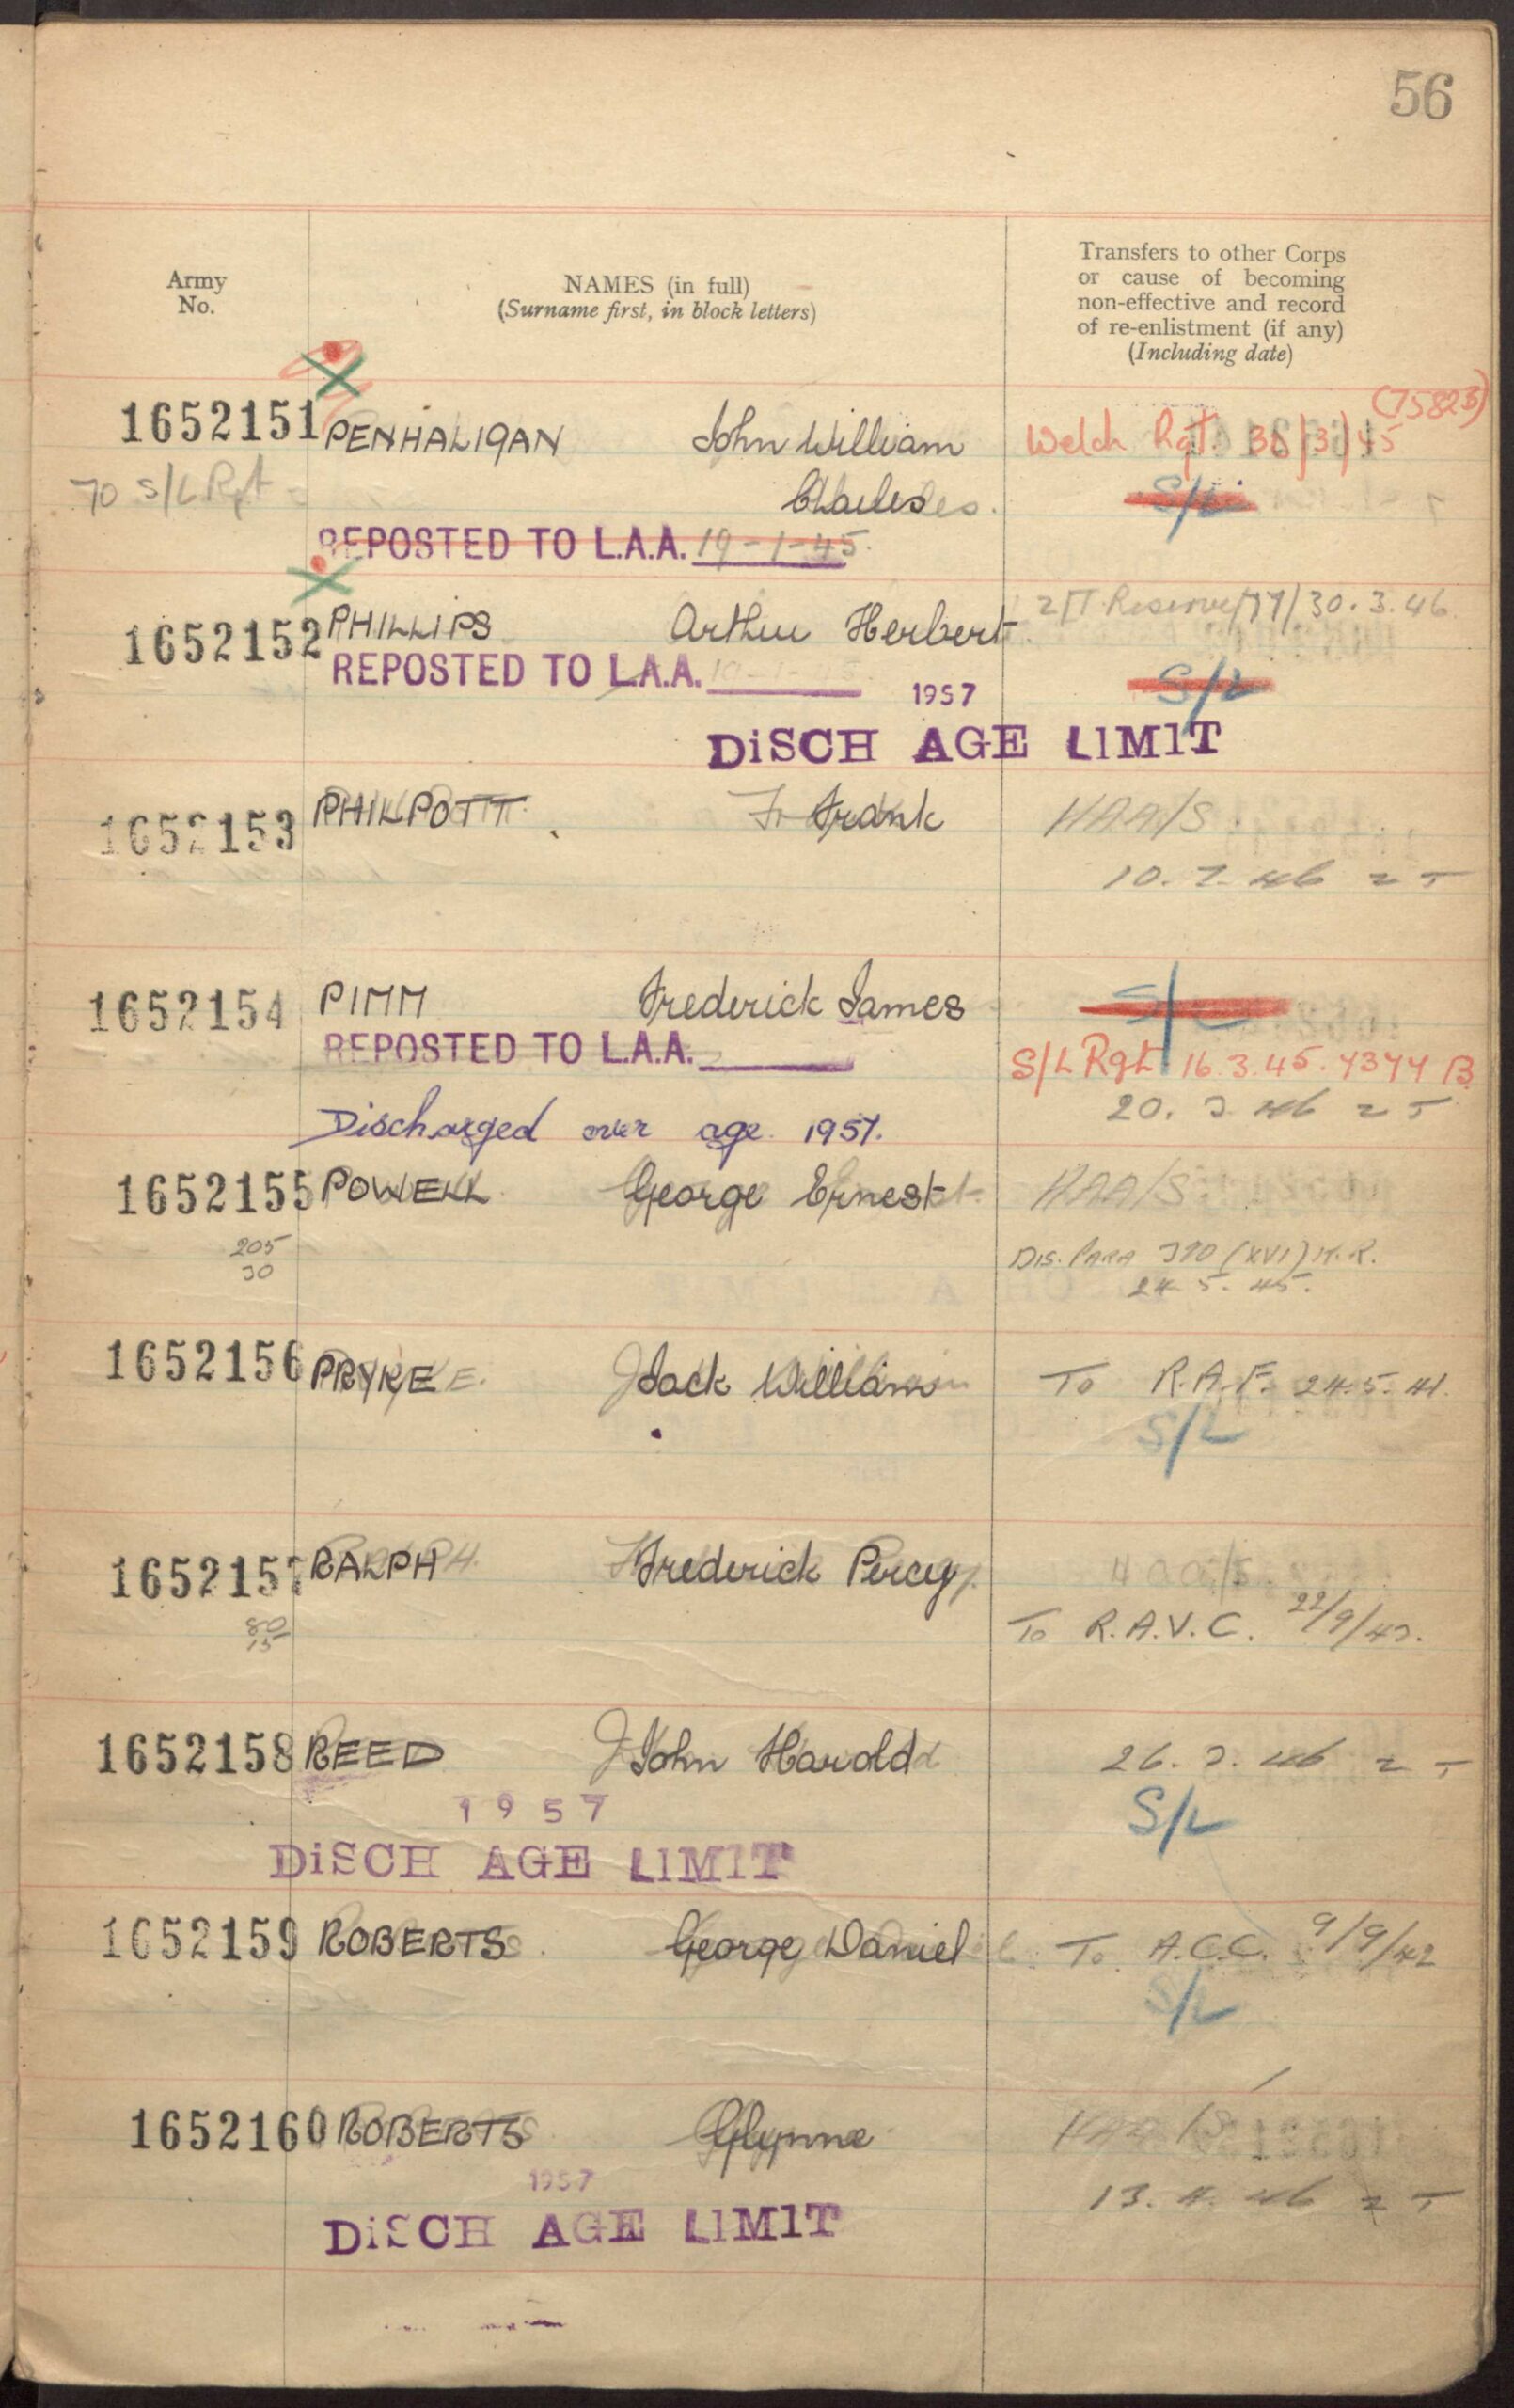 56
Army
No.
NAMES (in full)
(Surname first, in block letters)
Transfers to other Corps
or cause of becoming
non-effective and record
of re-enlistment (if any)
(Including date)
1652151 PENHALIGAN John William Welch Rgt. /3/45
70 S/L Rgt Charles S/L
REPOSTED TO L.A.A. 19-1-45.
1652152 PHILLIPS Arthur Herbert Z/T Reserve/77/30.3.46
REPOSTED TO L.A.A. S/L
1957
DiSCH AGE LIMIT
1652153 PHILPOTT Frank HAA/S
46 Z T
1652154 PIMM Frederick James S/L
REPOSTED TO L.A.A. S/L Rgt 16.3.45.
46 Z T
Discharged over age 1957.
1652155 POWELL George Ernest HAA/S
205
30
DIS. PARA 390 (XVI) K.R.
24.5.45.
1652156 PRYKE Jack William To R.A.F. 24.5.41.
S/L
1652157 RALPH Frederick Percy HAA/S
80
15
To R.A.V.C. 22/9/43.
1652158 REED John Harold 26.3.46 Z T
1957 S/L
DiSCH AGE LIMIT
1652159 ROBERTS George Daniel To A.C.C. 9/9/42
S/L
1652160 ROBERTS Glynne HAA/S
1957 13.4.46 Z T
DiSCH AGE LIMIT